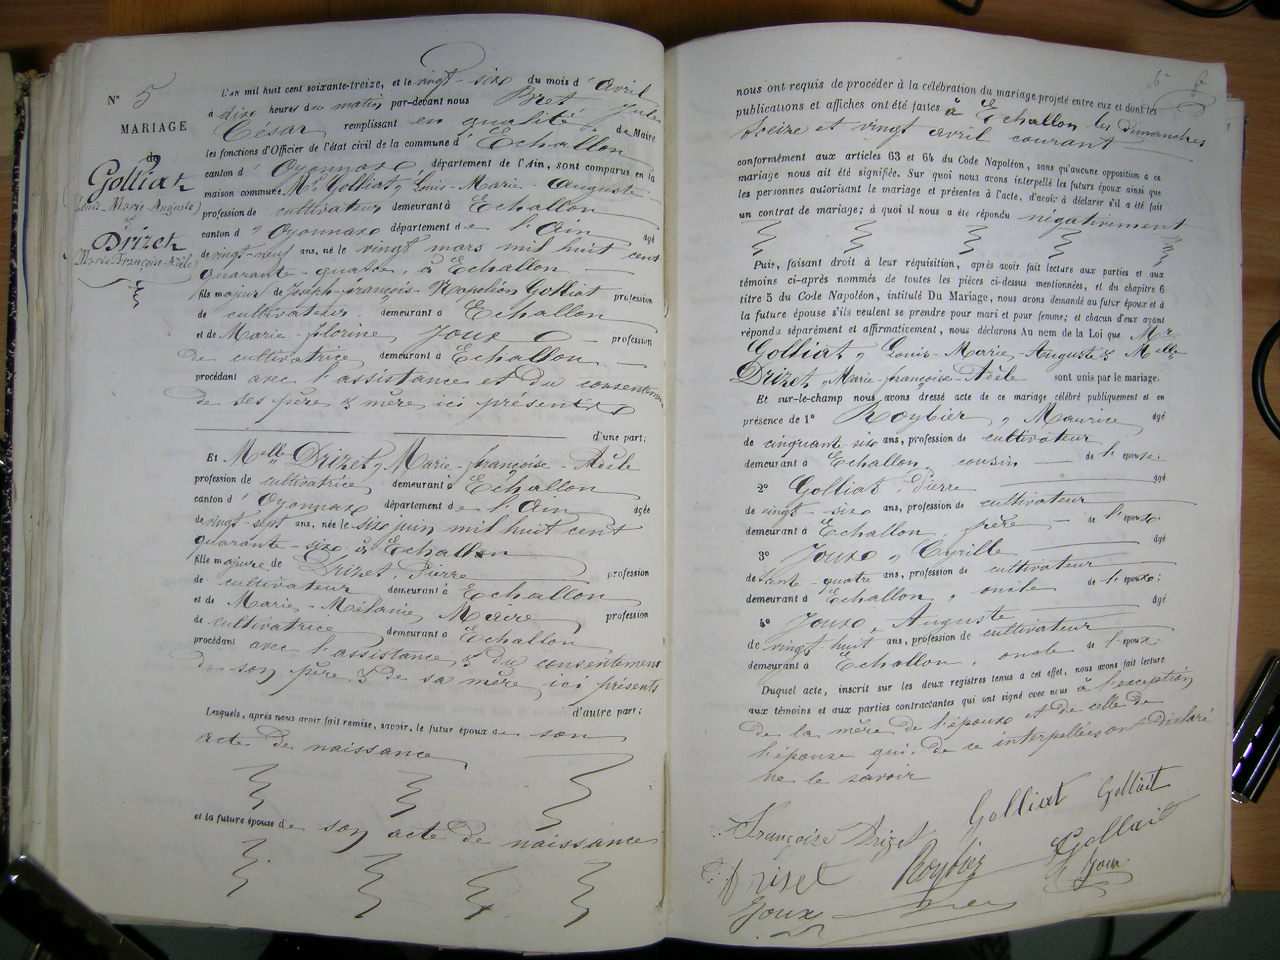 N° 5
MARIAGE
de
Golliat
Louis-Marie-Auguste
et
Drizet
Marie-Françoise-Adèle
L'an mil huit cent soixante-treize, et le vingt-six du mois d'Avril
à dix heures du matin par-devant nous Bret Jules
César remplissant en qualité de Maire
les fonctions d'Officier de l'état civil de la commune d'Echallon
canton d'Oyonnax département de l'Ain, sont comparus en la
maison commune Mr Golliat, Louis-Marie-Auguste
profession de cultivateur demeurant à Echallon
canton d'Oyonnax département de l'Ain âgé
de vingt-neuf ans, né le vingt mars mil huit cent
quarante-quatre, à Echallon
fils majeur de Joseph-françois-Napoléon Golliat profession
de cultivateur demeurant à Echallon
et de Marie-florine Joux profession
de cultivatrice demeurant à Echallon
procédant avec l'assistance et du consentement
de ses père & mère ici présents
d'une part;
Et Melle Drizet, Marie-françoise-Adèle
profession de cultivatrice demeurant à Echallon
canton d'Oyonnax département de l'Ain âgée
de vingt-sept ans, née le six juin mil huit cent
quarante-six à Echallon
fille majeure de Drizet, Pierre profession
de cultivateur demeurant à Echallon
et de Marie-Mélanie Maire profession
de cultivatrice demeurant à Echallon
procédant avec l'assistance & du consentement
de son père & de sa mère, ici présents
d'autre part;
Lesquels, après nous avoir fait remise, savoir, le futur époux de son
acte de naissance
et la future épouse de son acte de naissance
nous ont requis de procéder à la célébration du mariage projeté entre eux et dont les
publications et affiches ont été faites à Echallon les dimanches
treize et vingt avril courant
conformément aux articles 63 et 64 du Code Napoléon, sans qu'aucune opposition à ce
mariage nous ait été signifiée. Sur quoi nous avons interpellé les futurs époux ainsi que
les personnes autorisant le mariage et présentes à l'acte, d'avoir à déclarer s'il a été fait
un contrat de mariage; à quoi il nous a été répondu négativement
Puis, faisant droit à leur réquisition, après avoir fait lecture aux parties et aux
témoins ci-après nommés de toutes les pièces ci-dessus mentionnées, et du chapitre 6
titre 5 du Code Napoléon, intitulé Du Mariage, nous avons demandé au futur époux et à
la future épouse s'ils veulent se prendre pour mari et pour femme; et chacun d'eux ayant
répondu séparément et affirmativement, nous déclarons Au nom de la Loi que Mr
Golliat, Louis-Marie-Auguste & Melle
Drizet, Marie-françoise-Adèle sont unis par le mariage.
Et sur-le-champ nous avons dressé acte de ce mariage célébré publiquement et en
présence de 1° Roybier, Maurice âgé
de cinquante six ans, profession de cultivateur
demeurant à Echallon, cousin de l'épouse;
2° Golliat, Pierre âgé
de vingt-six ans, profession de cultivateur
demeurant à Echallon frère de l'époux
3° Joux, Cyrille âgé
de ante-quatre ans, profession de cultivateur
demeurant à Echallon, oncle de l'époux;
4° Joux, Auguste âgé
de vingt-huit ans, profession de cultivateur
demeurant à Echallon, oncle de l'époux;
Duquel acte, inscrit sur les deux registres tenus à cet effet, nous avons fait lecture
aux témoins et aux parties contractantes qui ont signé avec nous à l'exception
de la mère de l'époux et de celle de
l'épouse qui, de ce interpellées ont déclaré
ne le savoir
Françoise Drizet Golliat Golliat
Drizet Roybier Golliat
Joux Joux